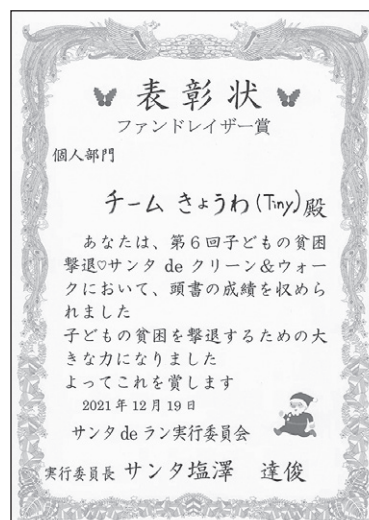 表彰状
ファンドレイザー賞
個人部門
チーム きょうわ(Tiny)殿
あなたは、第6回子どもの貧困
撃退♡サンタ de クリーン&ウォー
クにおいて、頭書の成績を収めら
れました
子どもの貧困を撃退するための大
きな力になりました
よってこれを賞します
2021年12月19日
サンタ de ラン実行委員会
実行委員長 サンタ塩澤 達俊